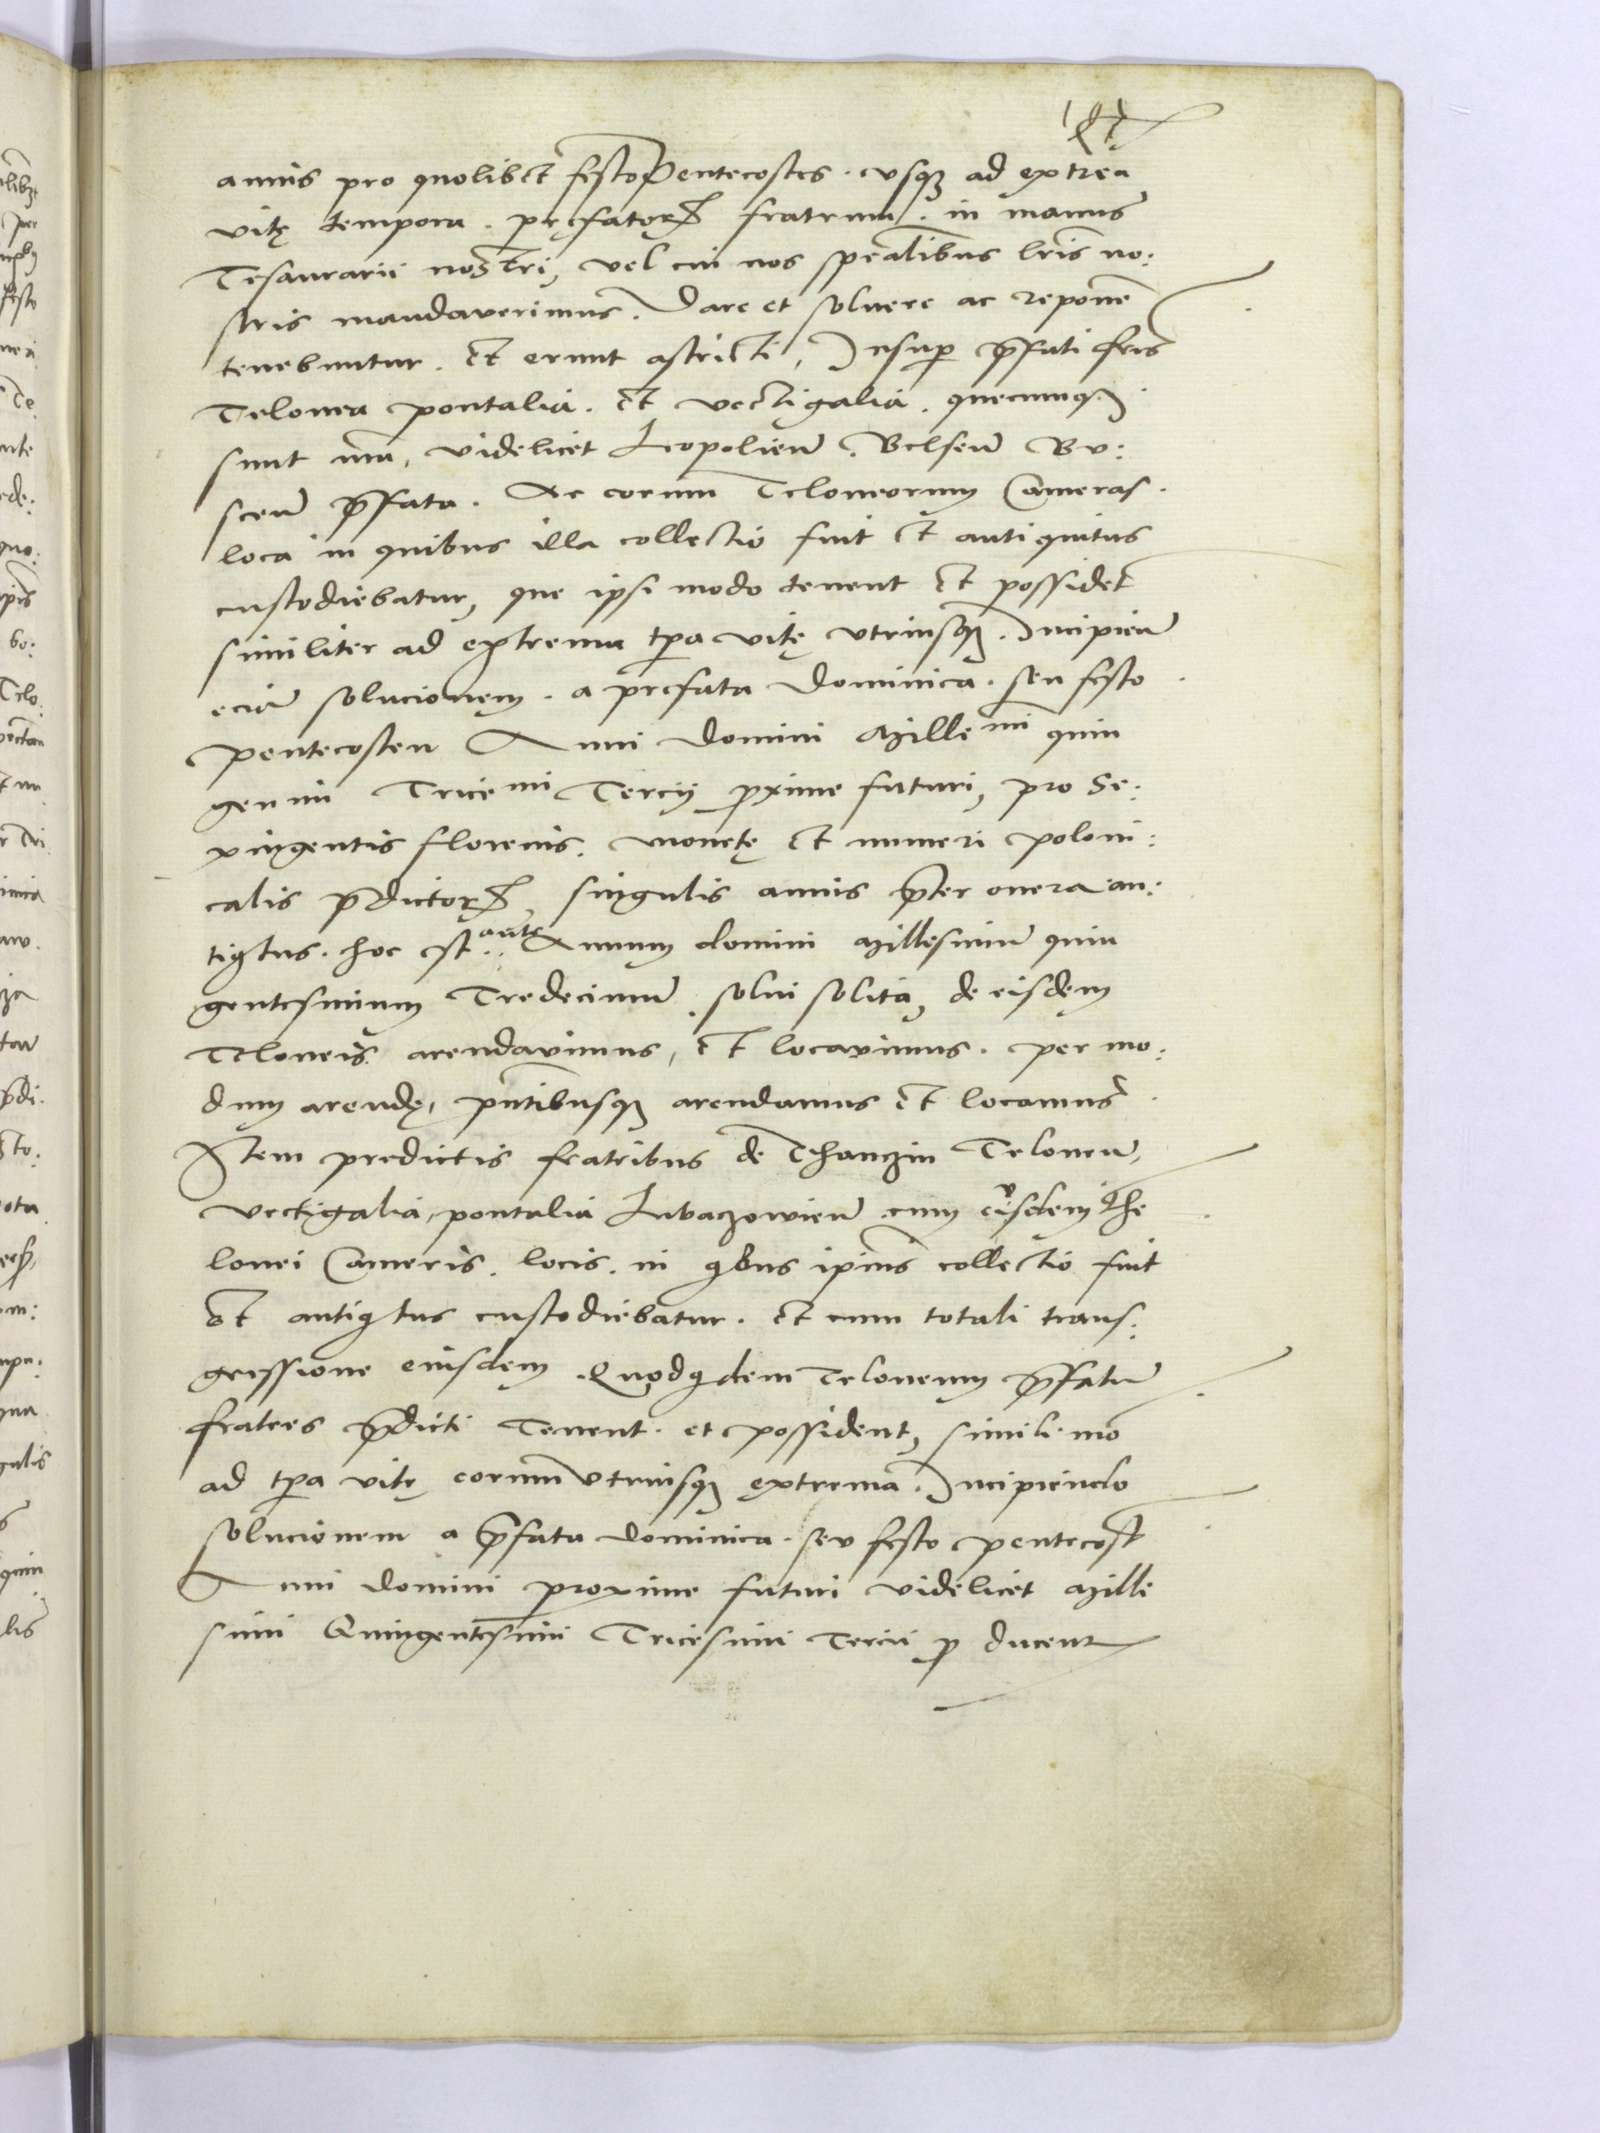 annis pro quolibet festo Pentecostes. vsq3 ad extrea
vitę tempora. pręfator fratrum. in manus
Tesaurarii nostri, vel cui nos spealibus lris no:
stris mandaverimus. Dare et soluere ac reponē
tenebuntur. Et erunt astricti, Insup p̄fati fr̄es
Telonea pontalia. et vectigalia. quecumq3
sunt nr̄a, videlicet Leopolien̄. Belsen̄ Bu:
scen̄ p̄fata. Ac eorum Teloneorum Cameras.
loca in quibus illa collectio fuit et antiquitus
custodiebatur, que ipsi modo tenent et possidēt
similiter ad extrema tp̄a vitę vtriusq3. Incipien̄
eciā solucionem. a prefata dominica. seu festo
pentecosten Anni domini Mille mi quin
gen mi Trice mi Tercij p̄xime futuri, pro Se:
xingentis florenis. monetę et numeri poloni:
calis p̄dictor, singulis annis p̄ter onera an:
tiqtus. hoc est ante Annum domini Millesimum quin
gentesimum Tredecimum, solui solita, de eisdem
Teloneis arendavimus, et locavimus. per mo:
dum arendę, pn̄tibusq3 arendamus et locamus
Item predictis fratribus de Thanczin Teloneū,
vectigalia, pontalia Lubaczowien̄ cum eisdem the
lonei Cameris. locis. in qbus ipius collectio fuit
et antiqtus custodiebatur. et cum totali trans:
gressione eiusdem. Quodqdem Teloneum p̄fatū
fratres p̄dicti tenent. et possident, simili mō
ad tp̄a vitę eorum vtriusq3 extrema. Incipiendo
solucionem a p̄fata dominica. seu festo pentecost
Anni domini proxime futuri videlicet Mille
simi Quingentesimi Tricesimi Tercii p ducent